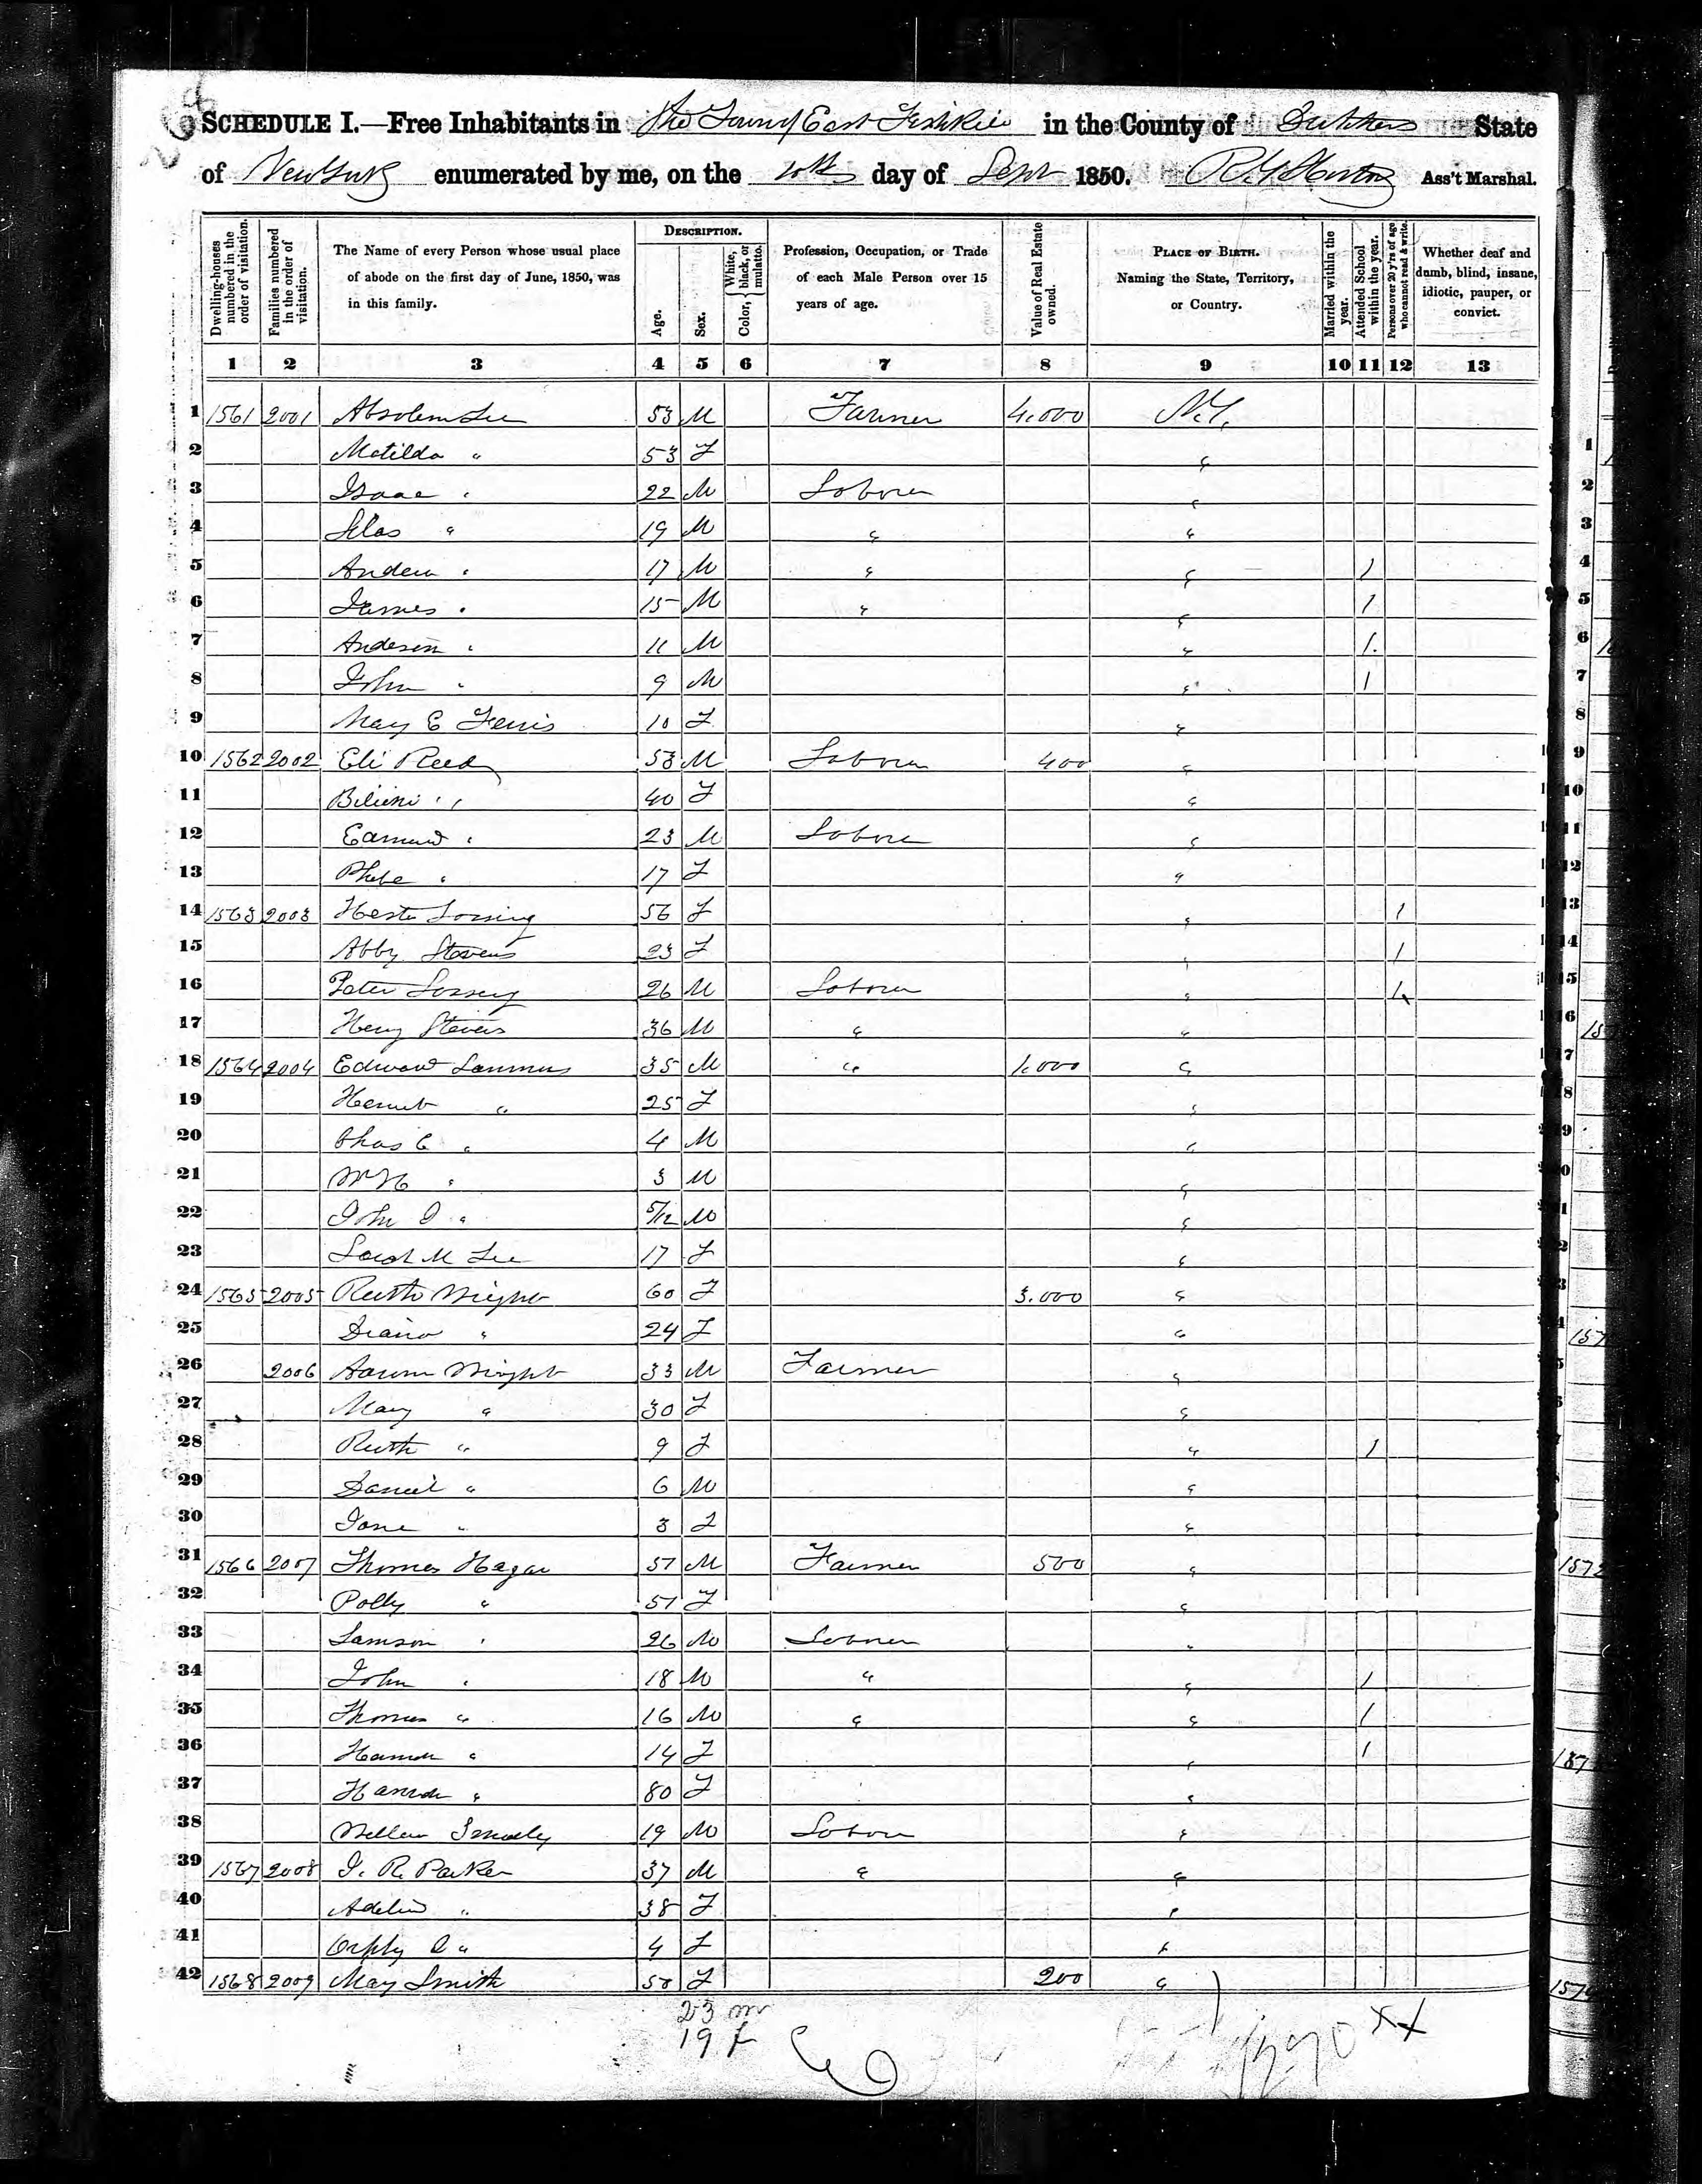 SCHEDULE I.—Free Inhabitants in the Town of East Fishkill in the County of Dutchess State
of New York enumerated by me, on the 10th day of Sept 1850. Ass't Marshal.
Dwelling-houses numbered in the order of visitation.
Families numbered in the order of visitation.
The Name of every Person whose usual place of abode on the first day of June, 1850, was in this family.
DESCRIPTION.
Age.
Sex.
Color, { White, black, or mulatto.
Profession, Occupation, or Trade of each Male Person over 15 years of age.
Value of Real Estate owned.
PLACE OF BIRTH. Naming the State, Territory, or Country.
Married within the year.
Attended School within the year.
Persons over 20 y'rs of age who cannot read & write.
Whether deaf and dumb, blind, insane, idiotic, pauper, or convict.
1 2 3 4 5 6 7 8 9 10 11 12 13
1 1561 2001 Absolem Lee 53 M Farmer 4.000 N.Y.
2 Matilda " 53 F "
3 Isaac " 22 M Laborer "
4 Silas " 19 M " "
5 Andrew " 17 M " " 1
6 James " 15 M " " 1
7 Anderson " 11 M " 1
8 John " 9 M " 1
9 Mary E Ferris 10 F "
10 1562 2002 Eli Reed 53 M Laborer 400 "
11 " 40 F "
12 Edmund " 23 M Laborer "
13 Phebe " 17 F "
14 1563 2003 Hester Lossing 56 F " 1
15 Abby Stevens 23 F " 1
16 Peter 26 M Laborer " 1
17 Henry Stevens 36 M " "
18 1564 2004 Edward 35 M " 1.000 "
19 " 25 F "
20 Chas C " 4 M "
21 Wm H " 3 M "
22 John " 5/12 M "
23 Sarah M Lee 17 F "
24 1565 2005 Ruth Wright 60 F 3.000 "
25 Diana " 24 F "
26 2006 Aaron Wright 33 M Farmer "
27 Mary " 30 F "
28 Ruth " 9 F " 1
29 Daniel " 6 M "
30 Jane " 3 F "
31 1566 2007 Thomas Hagar 57 M Farmer 500 "
32 Polly " 57 F "
33 Samson " 26 M Laborer "
34 John " 18 M " " 1
35 Thomas " 16 M " " 1
36 Hannah " 14 F " 1
37 Hannah " 80 F "
38 19 M Laborer "
39 1567 2008 J. R. Parker 37 M " "
40 Adeline " 38 F "
41 " 4 F "
42 1568 2009 May Smith 50 F 200 "
23 m
19 f